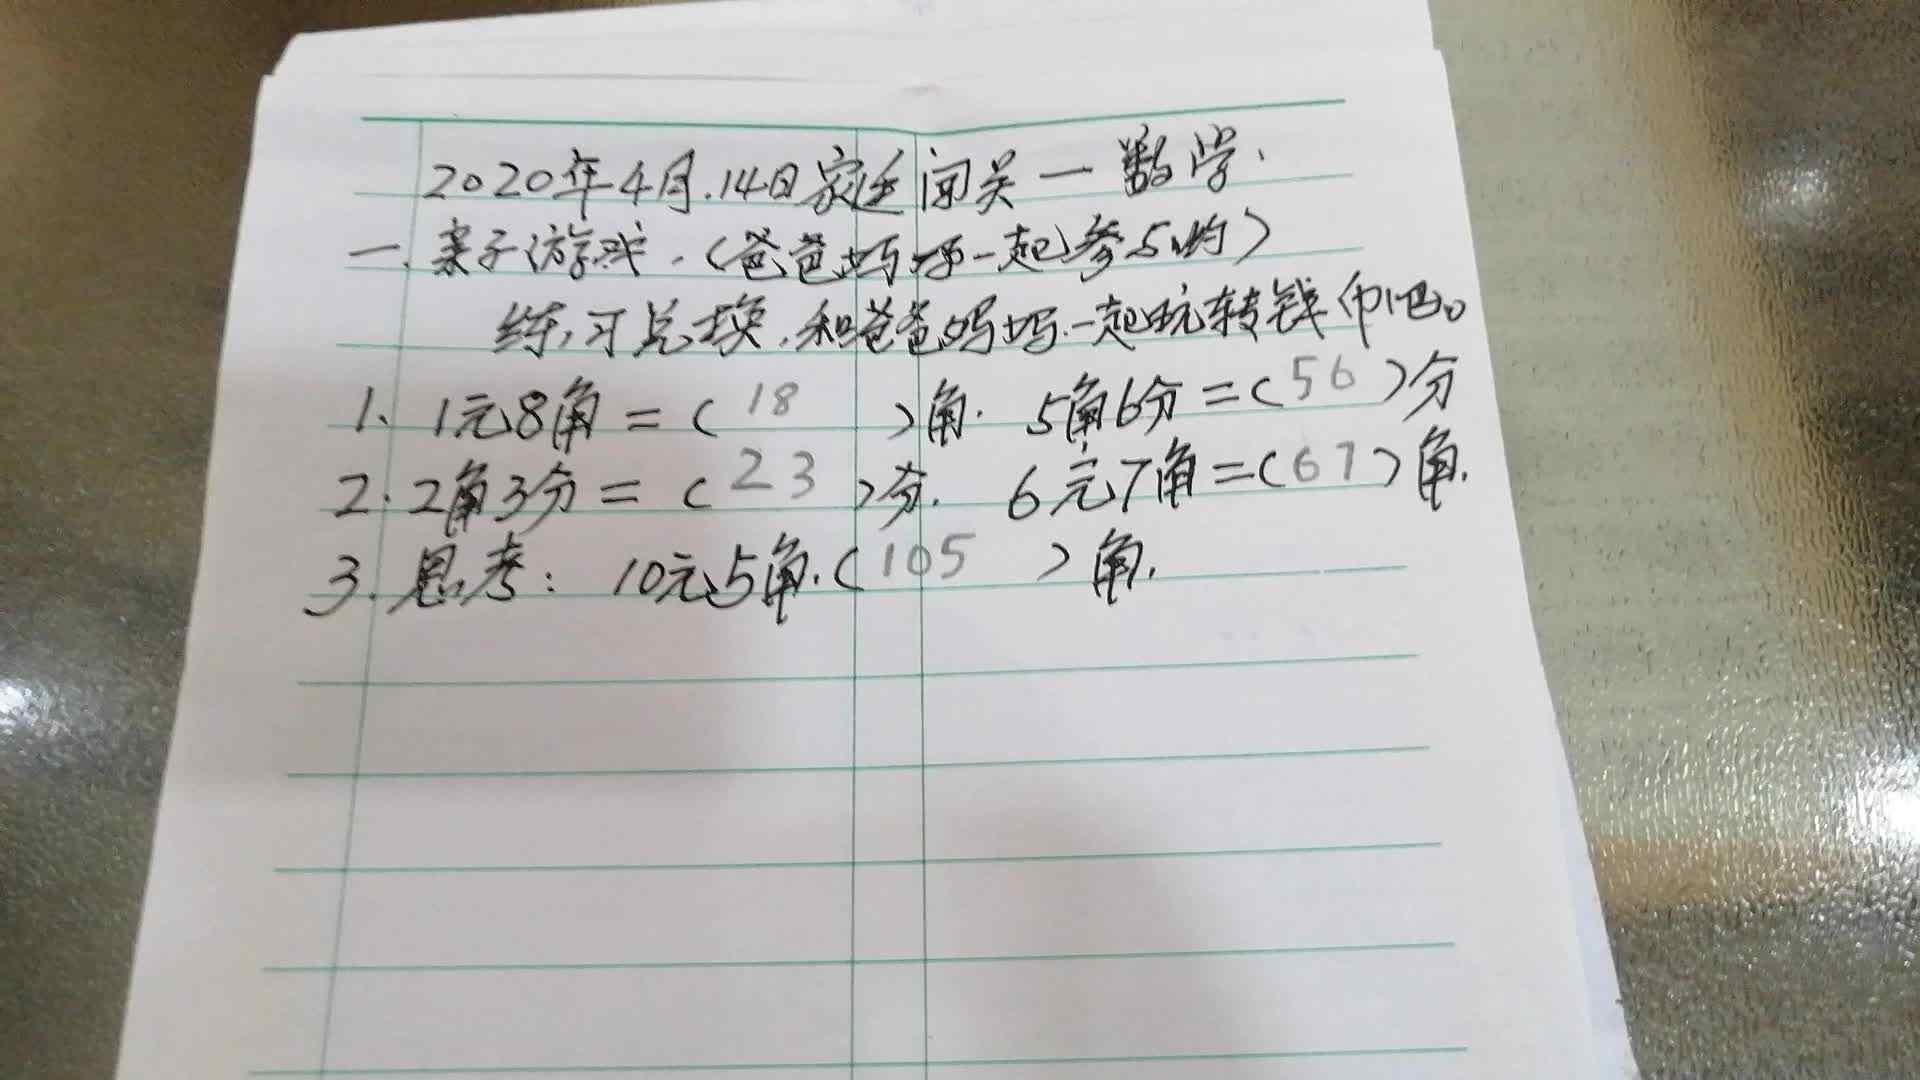 2020年4月.14日家庭闯关一数学.
一.亲子游戏.(爸爸妈妈一起参与哟)
练习兑换,和爸爸妈妈一起玩转钱币吧。
1、1元8角=(18)角. 5角6分=(56)分
2.2角3分=(23)分. 6元7角=(67)角.
3.思考:10元5角.(105)角.